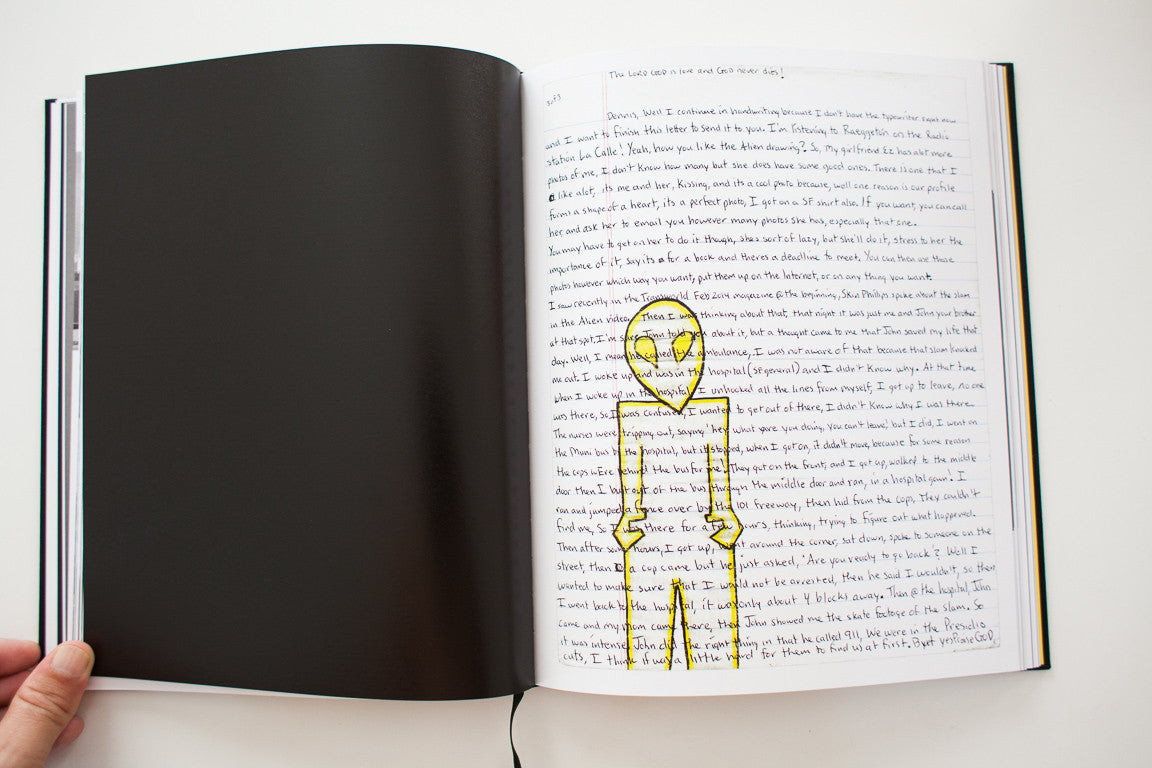 The LORD GOD is love and GOD never dies!
3 of 3
Dennis, Well I continue in handwriting because I don't have the typewriter right now
and I want to finish this letter to send it to you. I'm listening to Raeggeton on the Radio
station La Calle! Yeah, how you like the Alien drawing? So, My girlfriend Ez has alot more
photos of me, I don't know how many but she does have some good ones. There is one that I
like alot, its me and her, Kissing, and its a cool photo because, well one reason is our profile
forms a shape of a heart, its a perfect photo, I got on a SF shirt also. If you want, you can call
her and ask her to email you however many photos she has, especially that one.
You may have to get on her to do it though, shes sort of lazy, but she'll do it, stress to her the
importance of it, say its for a book and theres a deadline to meet. You can then use those
photos however which way you want, put them up on the Internet, or on any thing you want.
I saw recently in the Transworld Feb 2014 magazine @ the beginning, Skin Phillips spoke about the slam
in the Alien video. Then I was thinking about that, that night it was just me and John your brother
at that spot, I'm sure John told you about it, but a thought came to me that John saved my life that
day. Well, I mean he called the ambulance, I was not aware of that because that slam knocked
me out. I woke up and was in the hospital (SF general) and I didn't know why. At that time
when I woke up in the hospital, I unhooked all the lines from myself, I got up to leave, no one
was there, so I was confused, I wanted to get out of there, I didn't know why I was there.
The nurses were tripping out, saying 'hey what are you doing, you can't leave' but I did, I went on
the Muni bus by the hospital, but it stopped, when I got on, it didn't move, because for some reason
the cops wEre behind the bus for me. They got on the front, and I got up, walked to the middle
door then I bust out of the bus through the middle door and ran, in a hospital gown! I
ran and jumped a fence over by the 101 freeway, then hid from the cops, They couldn't
find me, So I was there for a few hours, thinking, trying to figure out what happened.
Then after some hours, I got up, went around the corner, sat down, spoke to someone on the
street, then a cop came but he just asked, 'Are you ready to go back'? Well I
wanted to make sure that I would not be arrested, then he said I wouldn't, so then
I went back to the hospital, it was only about 4 blocks away. Then @ the hospital, John
came and my mom came there, then John showed me the skate footage of the slam. So
it was intense, John did the right thing in that he called 911, We were in the Presidio
cuts, I think it was a little hard for them to find us at first. But yes Praise GOD,